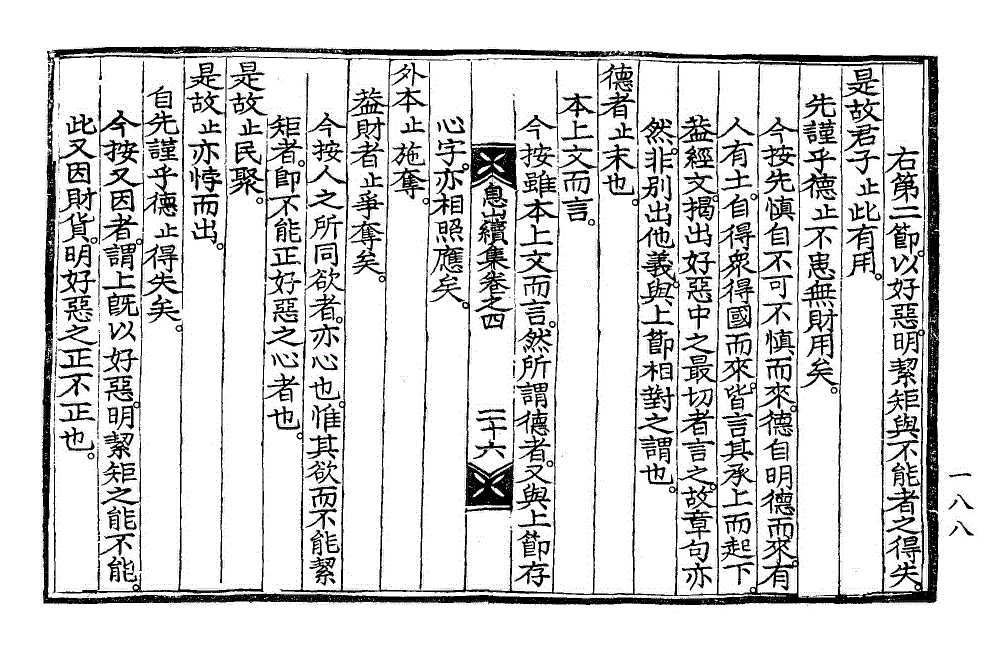 右第二節。以好惡。明絜矩與不能者之得失。
是故君子止此有用。
先謹乎德止不患無財用矣。
今按先慎自不可不慎而來。德自明德而來。有
人有土。自得衆得國而來。皆言其承上而起下。
葢經文。揭出好惡中之最切者言之。故章句亦
然。非別出他義。與上節相對之謂也。
德者止末也。
本上文而言。
今按雖本上文而言。然所謂德者。又與上節存
息山續集卷之四 二十六
心字。亦相照應矣。
外本止施奪。
葢財者止爭奪矣。
今按人之所同欲者。亦心也。惟其欲而不能絜
矩者。卽不能正好惡之心者也。
是故止民聚。
是故止亦悖而出。
自先謹乎德止得失矣。
今按又因者。謂上旣以好惡。明絜矩之能不能。
此又因財貨。明好惡之正不正也。
一八八